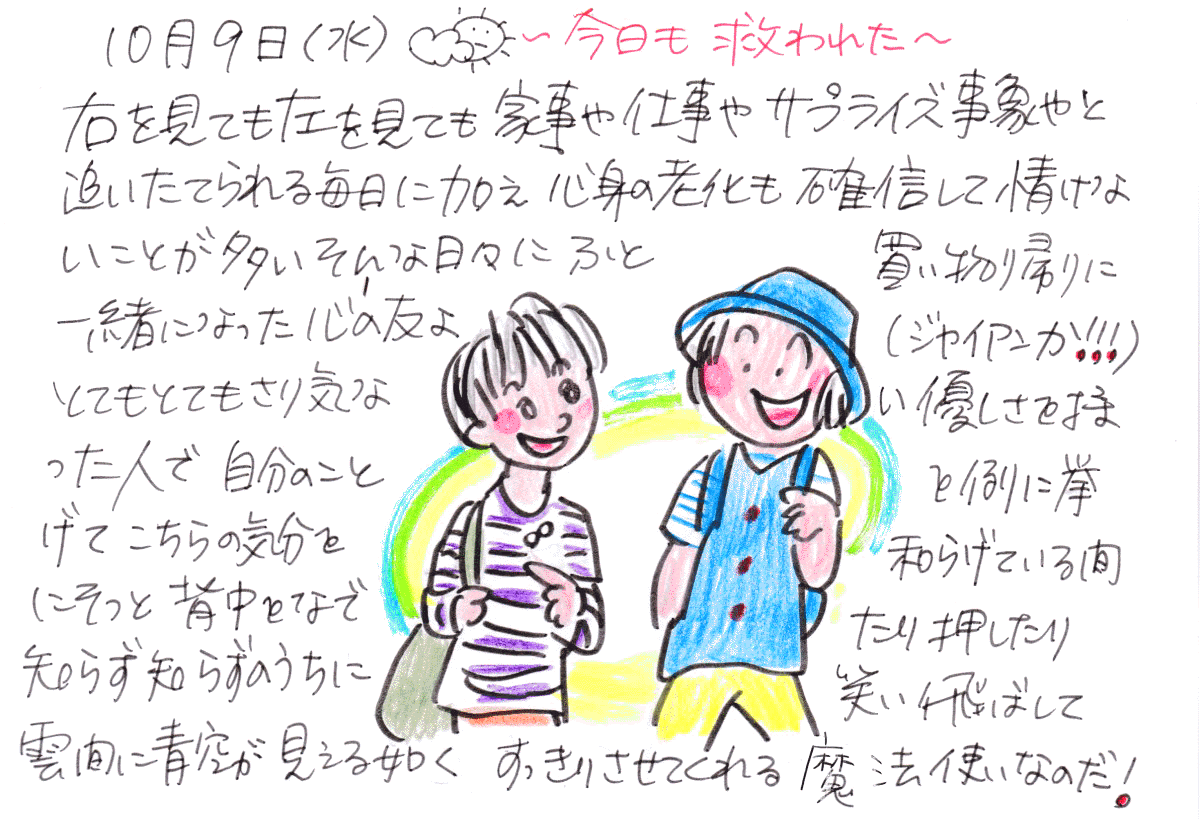 10月9日(水) ~今日も 救われた~
右を見ても左を見ても 家事や仕事や サプライズ事象やと
追いたてられる毎日に加え 心身の老化も 確信して情けな
いことが多いそんな日々に ふいと 買い物帰りに
一緒になった 心の友よ (ジャイアンか!!!)
とてもとてもさり気な い優しさを持
った人で 自分のこと を例に挙
げて こちらの気分を 和らげている間
にそっと 背中をなで たり押したり
知らず知らずのうちに 笑い飛ばして
雲間に青空が 見える如く すっきりさせてくれる 魔法使いなのだ!